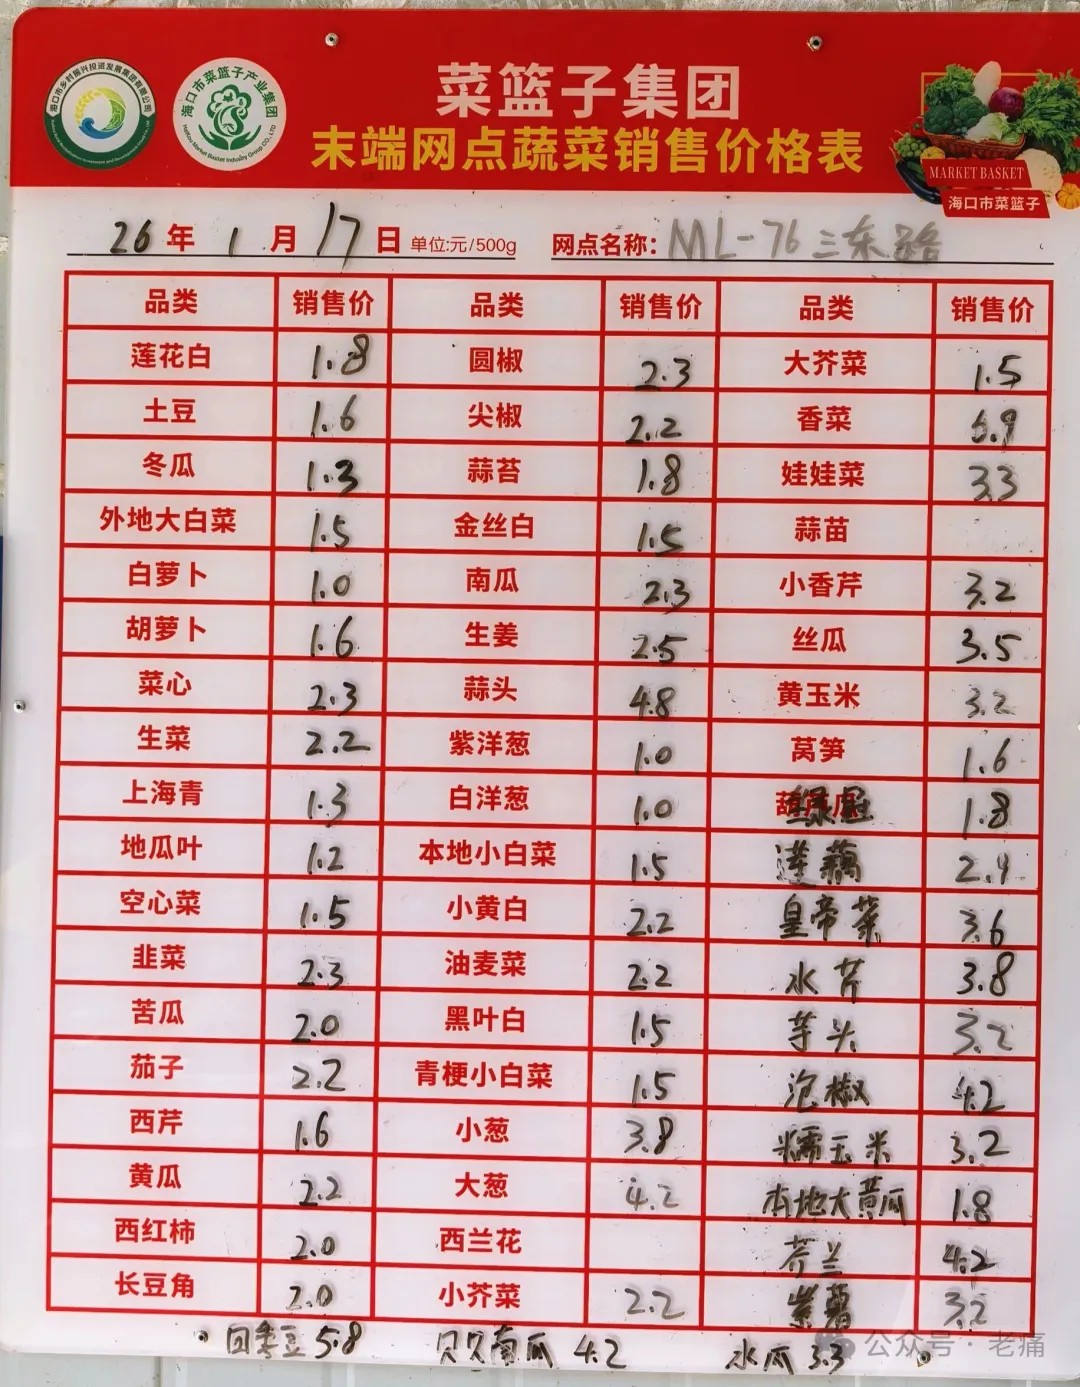 海口市乡村振兴投资发展集团有限公司
海口市菜篮子产业集团
Haikou Market Basket Industry Group CO., LTD
菜篮子集团
末端网点蔬菜销售价格表
MARKET BASKET
海口市菜篮子
26年 1月 17日 单位:元/500g 网点名称: ML-76 三东路
品类 销售价 品类 销售价 品类 销售价
莲花白 1.8 圆椒 2.3 大芥菜 1.5
土豆 1.6 尖椒 2.2 香菜 6.9
冬瓜 1.3 蒜苔 1.8 娃娃菜 3.3
外地大白菜 1.5 金丝白 1.5 蒜苗
白萝卜 1.0 南瓜 2.3 小香芹 3.2
胡萝卜 1.6 生姜 2.5 丝瓜 3.5
菜心 2.3 蒜头 4.8 黄玉米 3.2
生菜 2.2 紫洋葱 1.0 莴笋 1.6
上海青 1.3 白洋葱 1.0 1.8
地瓜叶 1.2 本地小白菜 1.5 莲藕 2.9
空心菜 1.5 小黄白 2.2 皇帝菜 3.6
韭菜 2.3 油麦菜 2.2 水芹 3.8
苦瓜 2.0 黑叶白 1.5 芋头 3.2
茄子 2.2 青梗小白菜 1.5 泡椒 4.2
西芹 1.6 小葱 3.8 糯玉米 3.2
黄瓜 2.2 大葱 4.2 本地大黄瓜 1.8
西红柿 2.0 西兰花 芥兰 4.2
长豆角 2.0 小芥菜 2.2 紫薯 3.2
回香豆 5.8 贝贝南瓜 4.2 水瓜 3.3
公众号·老痛